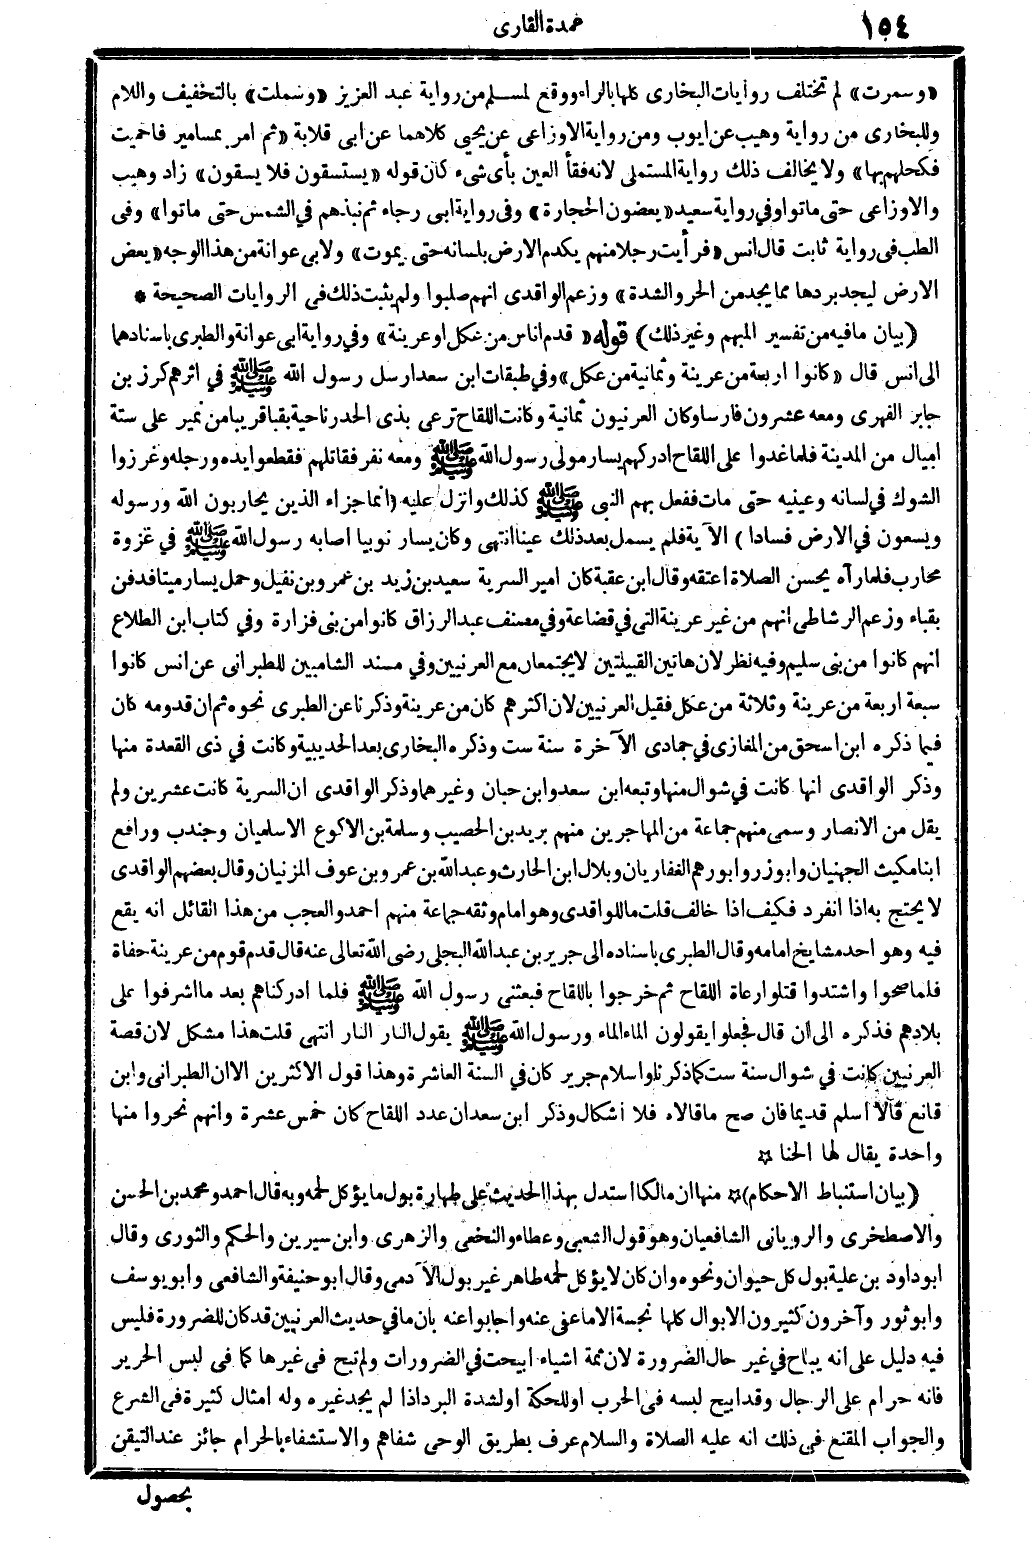 ١٥٤
عمدة القارى
«وسمرت» لم تختلف روايات البخارى كلها بالراء ووقع لمسلم من رواية عبد العزيز «وسملت» بالتخفيف واللام
وللبخارى من رواية وهيب عن ايوب ومن رواية الاوزاعى عن يحيى كلاهما عن ابى قلابة «ثم امر بمسامير فاحميت
فكحلهم بها» ولا يخالف ذلك رواية المستملى لانه فقأ العين بأى شىء كان قوله «يستسقون فلا يسقون» زاد وهيب
والاوزاعى حتى ماتوا وفي رواية سعيد «يعضون الحجارة» وفى رواية ابى رجاء ثم نبذهم فى الشمس حتى ماتوا» وفى
الطب فى رواية ثابت قال انس «فرأيت رجلا منهم يكدم الارض بلسانه حتى يموت» ولابى عوانة من هذا الوجه «يعض
الارض ليجد بردها مما يجد من الحر والشدة» وزعم الواقدى انهم صلبوا ولم يثبت ذلك فى الروايات الصحيحة *
(بيان مافيه من تفسير المبهم وغير ذلك) قوله «قدم اناس من عكل او عرينة» وفي رواية ابى عوانة والطبرى باسنادهما
الى انس قال «كانوا اربعة من عرينة وثمانية من عكل» وفي طبقات ابن سعد ارسل رسول الله ﷺ في اثرهم كرز بن
جابر الفهرى ومعه عشرون فارسا وكان العرنيون ثمانية وكانت اللقاح ترعى بذى الحدر ناحية بقبا قريبا من نمير على ستة
اميال من المدينة فلما غدوا على اللقاح ادركهم يسار مولى رسول الله ﷺ ومعه نفر فقاتلهم فقطعوا يده ورجله وغرزوا
الشوك في لسانه وعينيه حتى مات ففعل بهم النبى ﷺ كذلك وانزل عليه (انما جزاء الذين يحاربون الله ورسوله
ويسعون في الارض فسادا) الآية فلم يسمل بعد ذلك عينا انتهى وكان يسار نوبيا اصابه رسول الله ﷺ في غزوة
محارب فلما رآه يحسن الصلاة اعتقه وقال ابن عقبة كان امير السرية سعيد بن زيد بن عمرو بن نفيل وحمل يسار ميتا فدفن
بقباء وزعم الرشاطى انهم من غير عرينة التى في قضاعة وفي مصنف عبد الرزاق كانوا من بنى فزارة وفي كتاب ابن الطلاع
انهم كانوا من بنى سليم وفيه نظر لان هاتين القبيلتين لا يجتمعان مع العرنيين وفي مسند الشاميين للطبرانى عن انس كانوا
سبعة اربعة من عرينة وثلاثة من عكل فقيل العرنيين لان اكثرهم كان من عرينة وذكرنا عن الطبرى نحوه ثم ان قدومه كان
فيما ذكره ابن اسحق من المغازى في جمادى الآخرة سنة ست وذكره البخارى بعد الحديبية وكانت في ذى القعدة منها
وذكر الواقدى انها كانت في شوال منها وتبعه ابن سعد وابن حبان وغيرهما وذكر الواقدى ان السرية كانت عشرين ولم
يقل من الانصار وسمى منهم جماعة من المهاجرين منهم بريد بن الحصيب وسلمة بن الاكوع الاسلميان وجندب ورافع
ابنا مكيث الجهنيان وابو زر وابو رهم الغفاريان وبلال ابن الحارث وعبد الله بن عمرو بن عوف المزنيان وقال بعضهم الواقدى
لا يحتج به اذا انفرد فكيف اذا خالف قلت ما للواقدى وهو امام وثقه جماعة منهم احمد والعجب من هذا القائل انه يقع
فيه وهو احد مشايخ امامه وقال الطبرى باسناده الى جرير بن عبد الله البجلى رضى الله تعالى عنه قال قدم قوم من عرينة حفاة
فلما صحوا واشتدوا قتلوا رعاة اللقاح ثم خرجوا باللقاح فبعثنى رسول الله ﷺ فلما ادركناهم بعد ما اشرفوا على
بلادهم فذكره الى ان قال فجعلوا يقولون الماء الماء ورسول الله ﷺ يقول النار النار انتهى قلت هذا مشكل لان قصة
العرنيين كانت في شوال سنة ست كما ذكرنا واسلام جرير كان في السنة العاشرة وهذا قول الاكثرين الا ان الطبرانى وابن
قانع قالا اسلم قديما فان صح ما قالاه فلا اشكال وذكر ابن سعد ان عدد اللقاح كان خمس عشرة وانهم نحروا منها
واحدة يقال لها الحنا ٭
(بيان استنباط الاحكام) ٭ منها ان مالكا استدل بهذا الحديث على طهارة بول ما يؤكل لحمه وبه قال احمد ومحمد بن الحسن
والاصطخرى والرويانى الشافعيان وهو قول الشعبى وعطاء والنخعى والزهرى وابن سيرين والحكم والثورى وقال
ابو داود بن علية بول كل حيوان ونحوه وان كان لا يؤكل لحمه طاهر غير بول الآدمى وقال ابو حنيفة والشافعى وابو يوسف
وابو ثور وآخرون كثيرون الابوال كلها نجسة الا ما عفى عنه واجابوا عنه بان ما في حديث العرنيين قد كان للضرورة فليس
فيه دليل على انه يباح في غير حال الضرورة لان ثمة اشياء ابيحت في الضرورات ولم تبح فى غيرها كما فى لبس الحرير
فانه حرام على الرجال وقد ابيح لبسه فى الحرب او للحكة او لشدة البرد اذا لم يجد غيره وله امثال كثيرة فى الشرع
والجواب المقنع فى ذلك انه عليه الصلاة والسلام عرف بطريق الوحى شفاهم والاستشفاء بالحرام جائز عند التيقن
بحصول